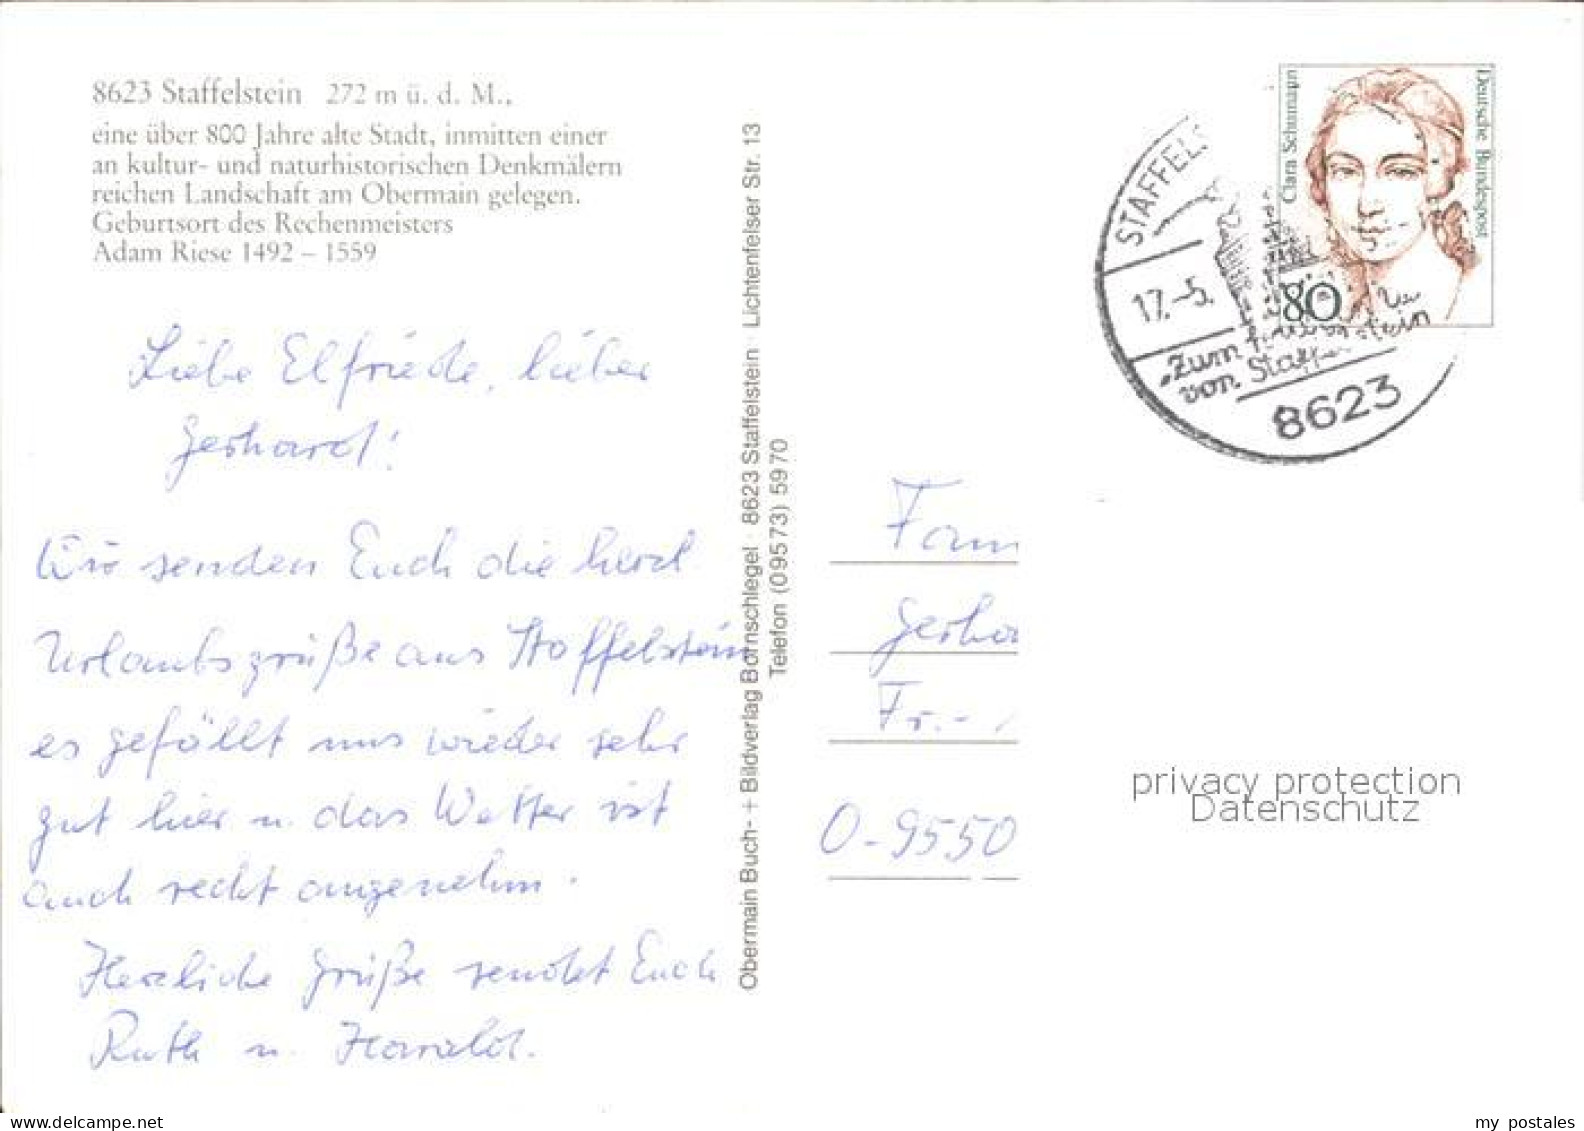 8623 Staffelstein 272 m ü. d. M.,
eine über 800 Jahre alte Stadt, inmitten einer
an kultur- und naturhistorischen Denkmälern
reichen Landschaft am Obermain gelegen.
Geburtsort des Rechenmeisters
Adam Riese 1492 – 1559
Liebe Elfriede, lieber
Gerhard!
Wir senden Euch die herzl.
Urlaubsgrüße aus Staffelstein
es gefällt uns wieder sehr
gut hier u. das Wetter ist
auch recht angenehm.
Herzliche Grüße sendet Euch
Ruth u. Harald.
Obermain Buch- + Bildverlag Bornschlegel · 8623 Staffelstein · Lichtenfelser Str. 13
Telefon (09573) 5970
Clara Schumann
Deutsche Bundespost
80
STAFFELS
17.-5.
"Zum
von Staffelstein
8623
Fam
Gerha
Fr.-
O-9550
privacy protection
Datenschutz
www.delcampe.net
my postales